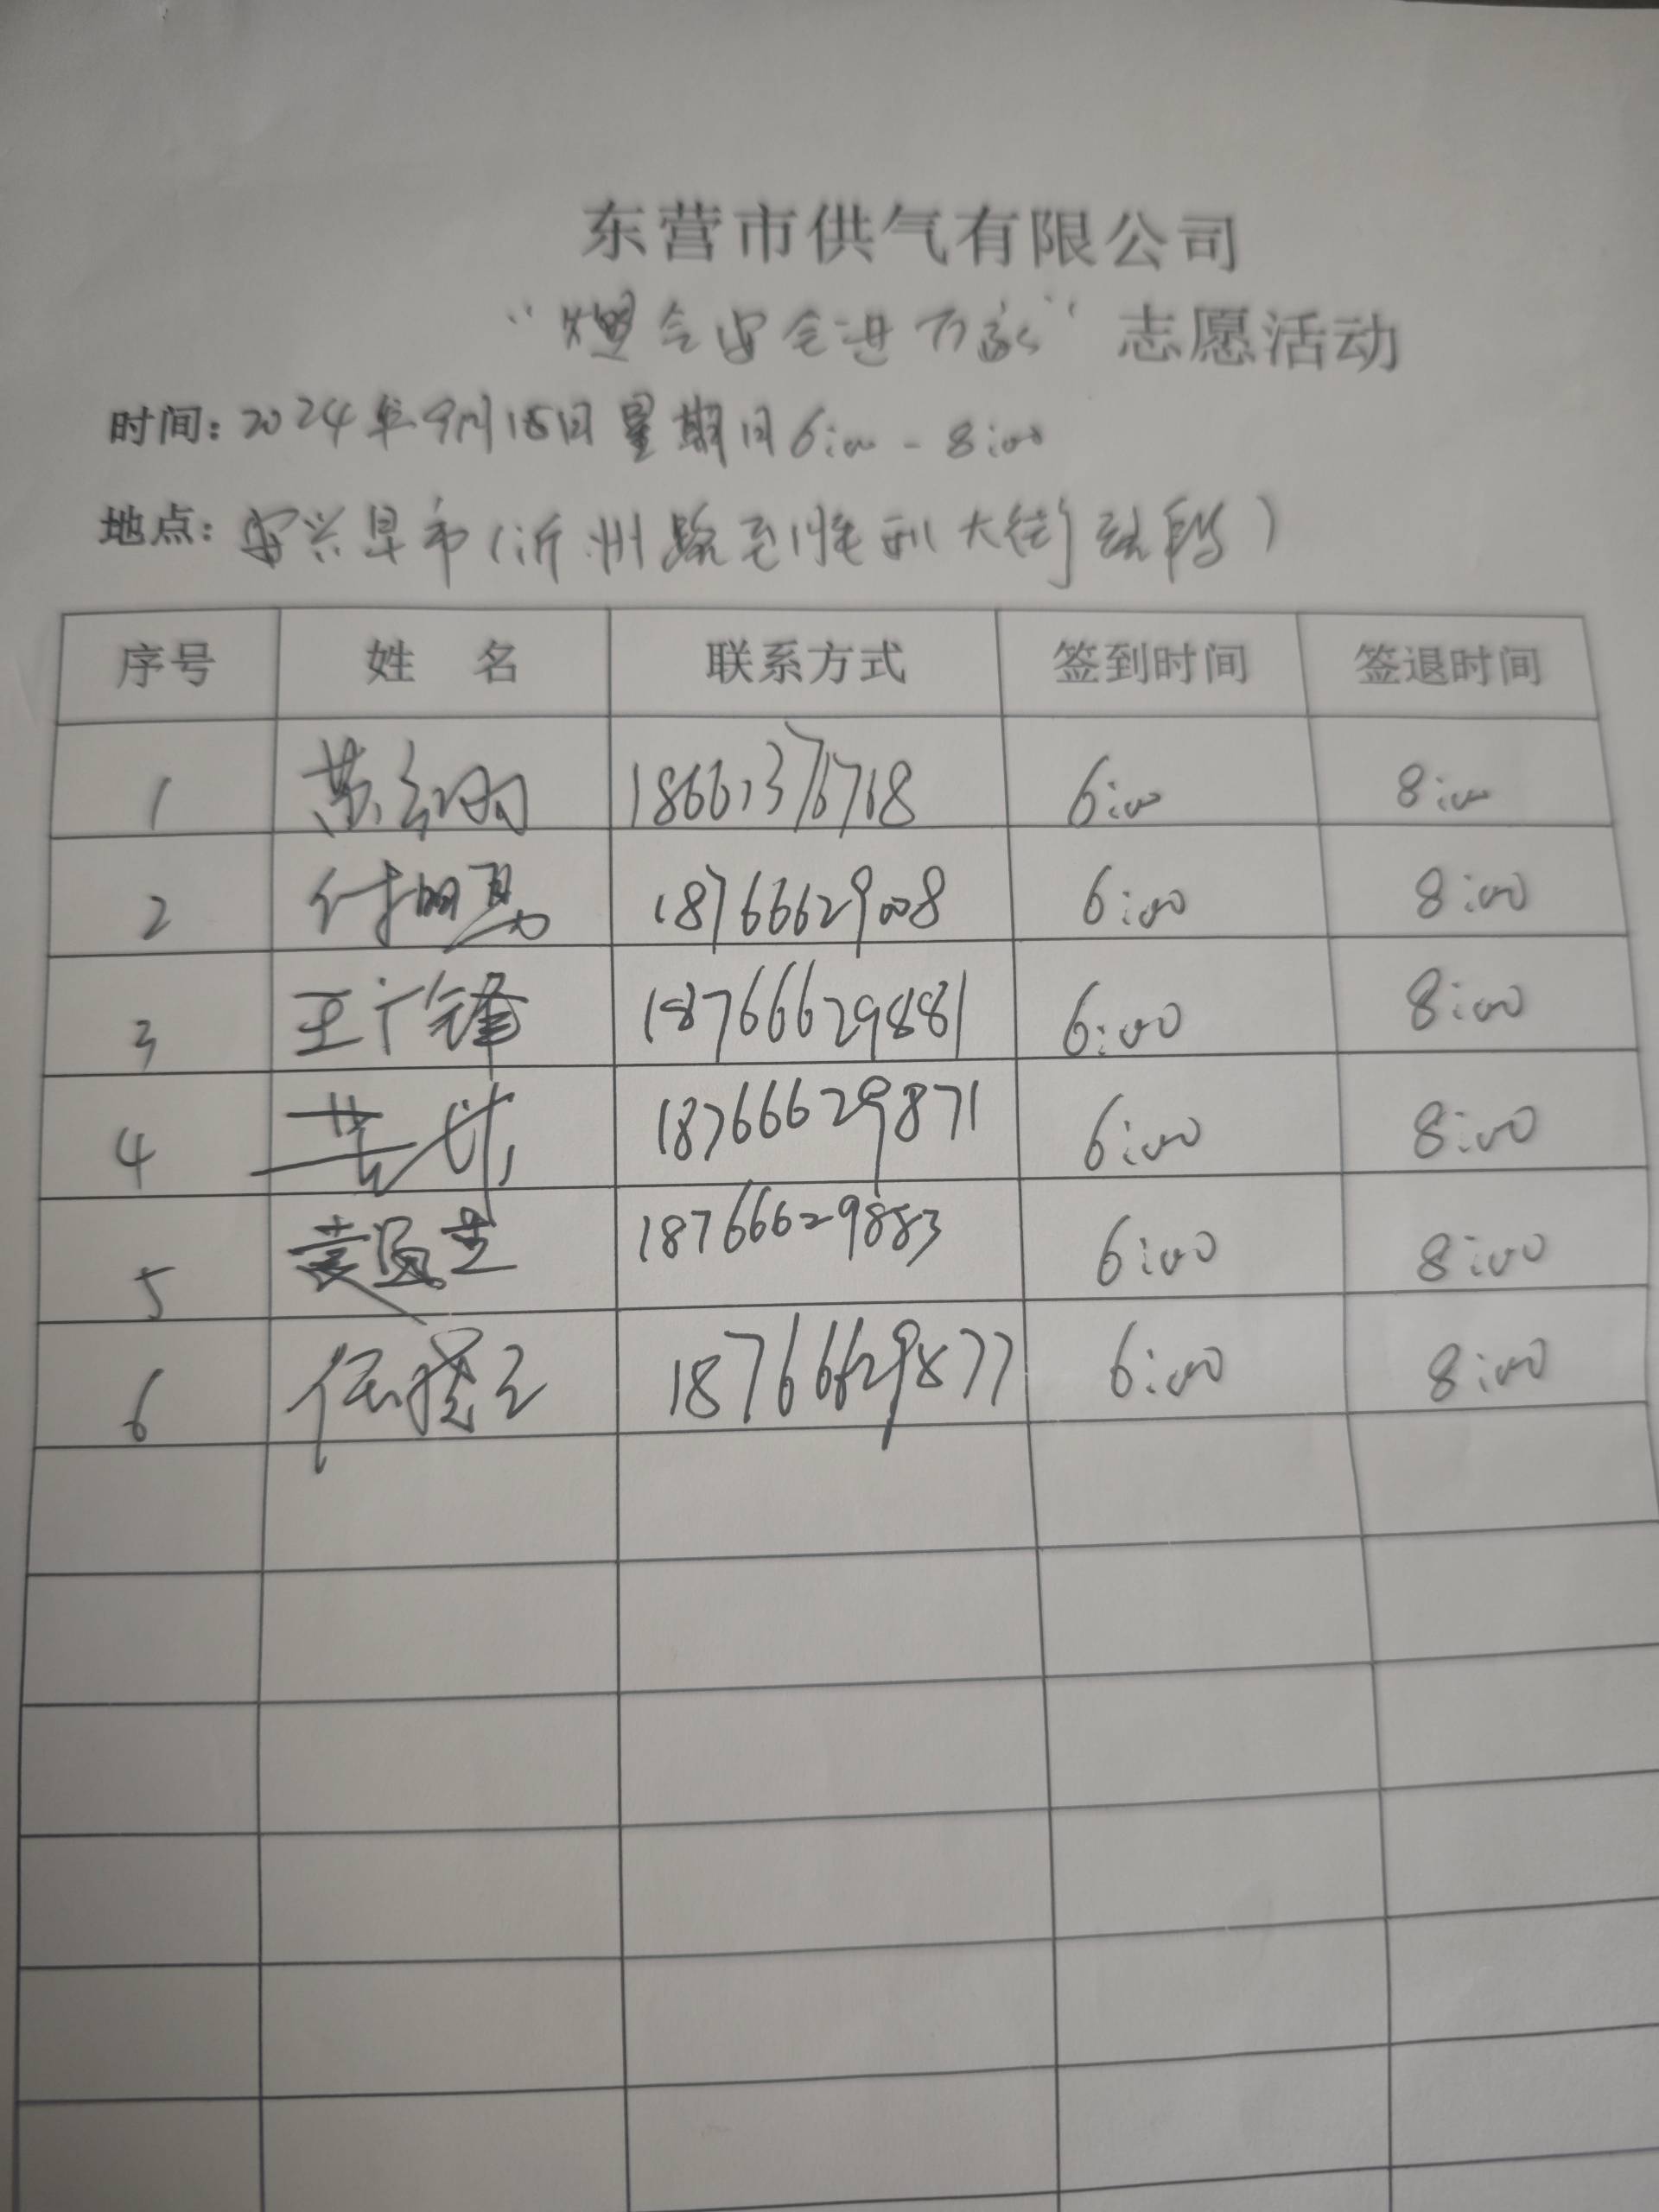 东营市供气有限公司
“燃气安全进万家”志愿活动
时间：2024年9月15日星期日6:00-8:00
地点：安兴早市(沂州路至胜利大街路段)
序号 姓 名 联系方式 签到时间 签退时间
1 6:00 8:00
2 18766629008 6:00 8:00
3 王广锋 18766629881 6:00 8:00
4 18766629871 6:00 8:00
5 18766629883 6:00 8:00
6 任晓玉 18766629877 6:00 8:00